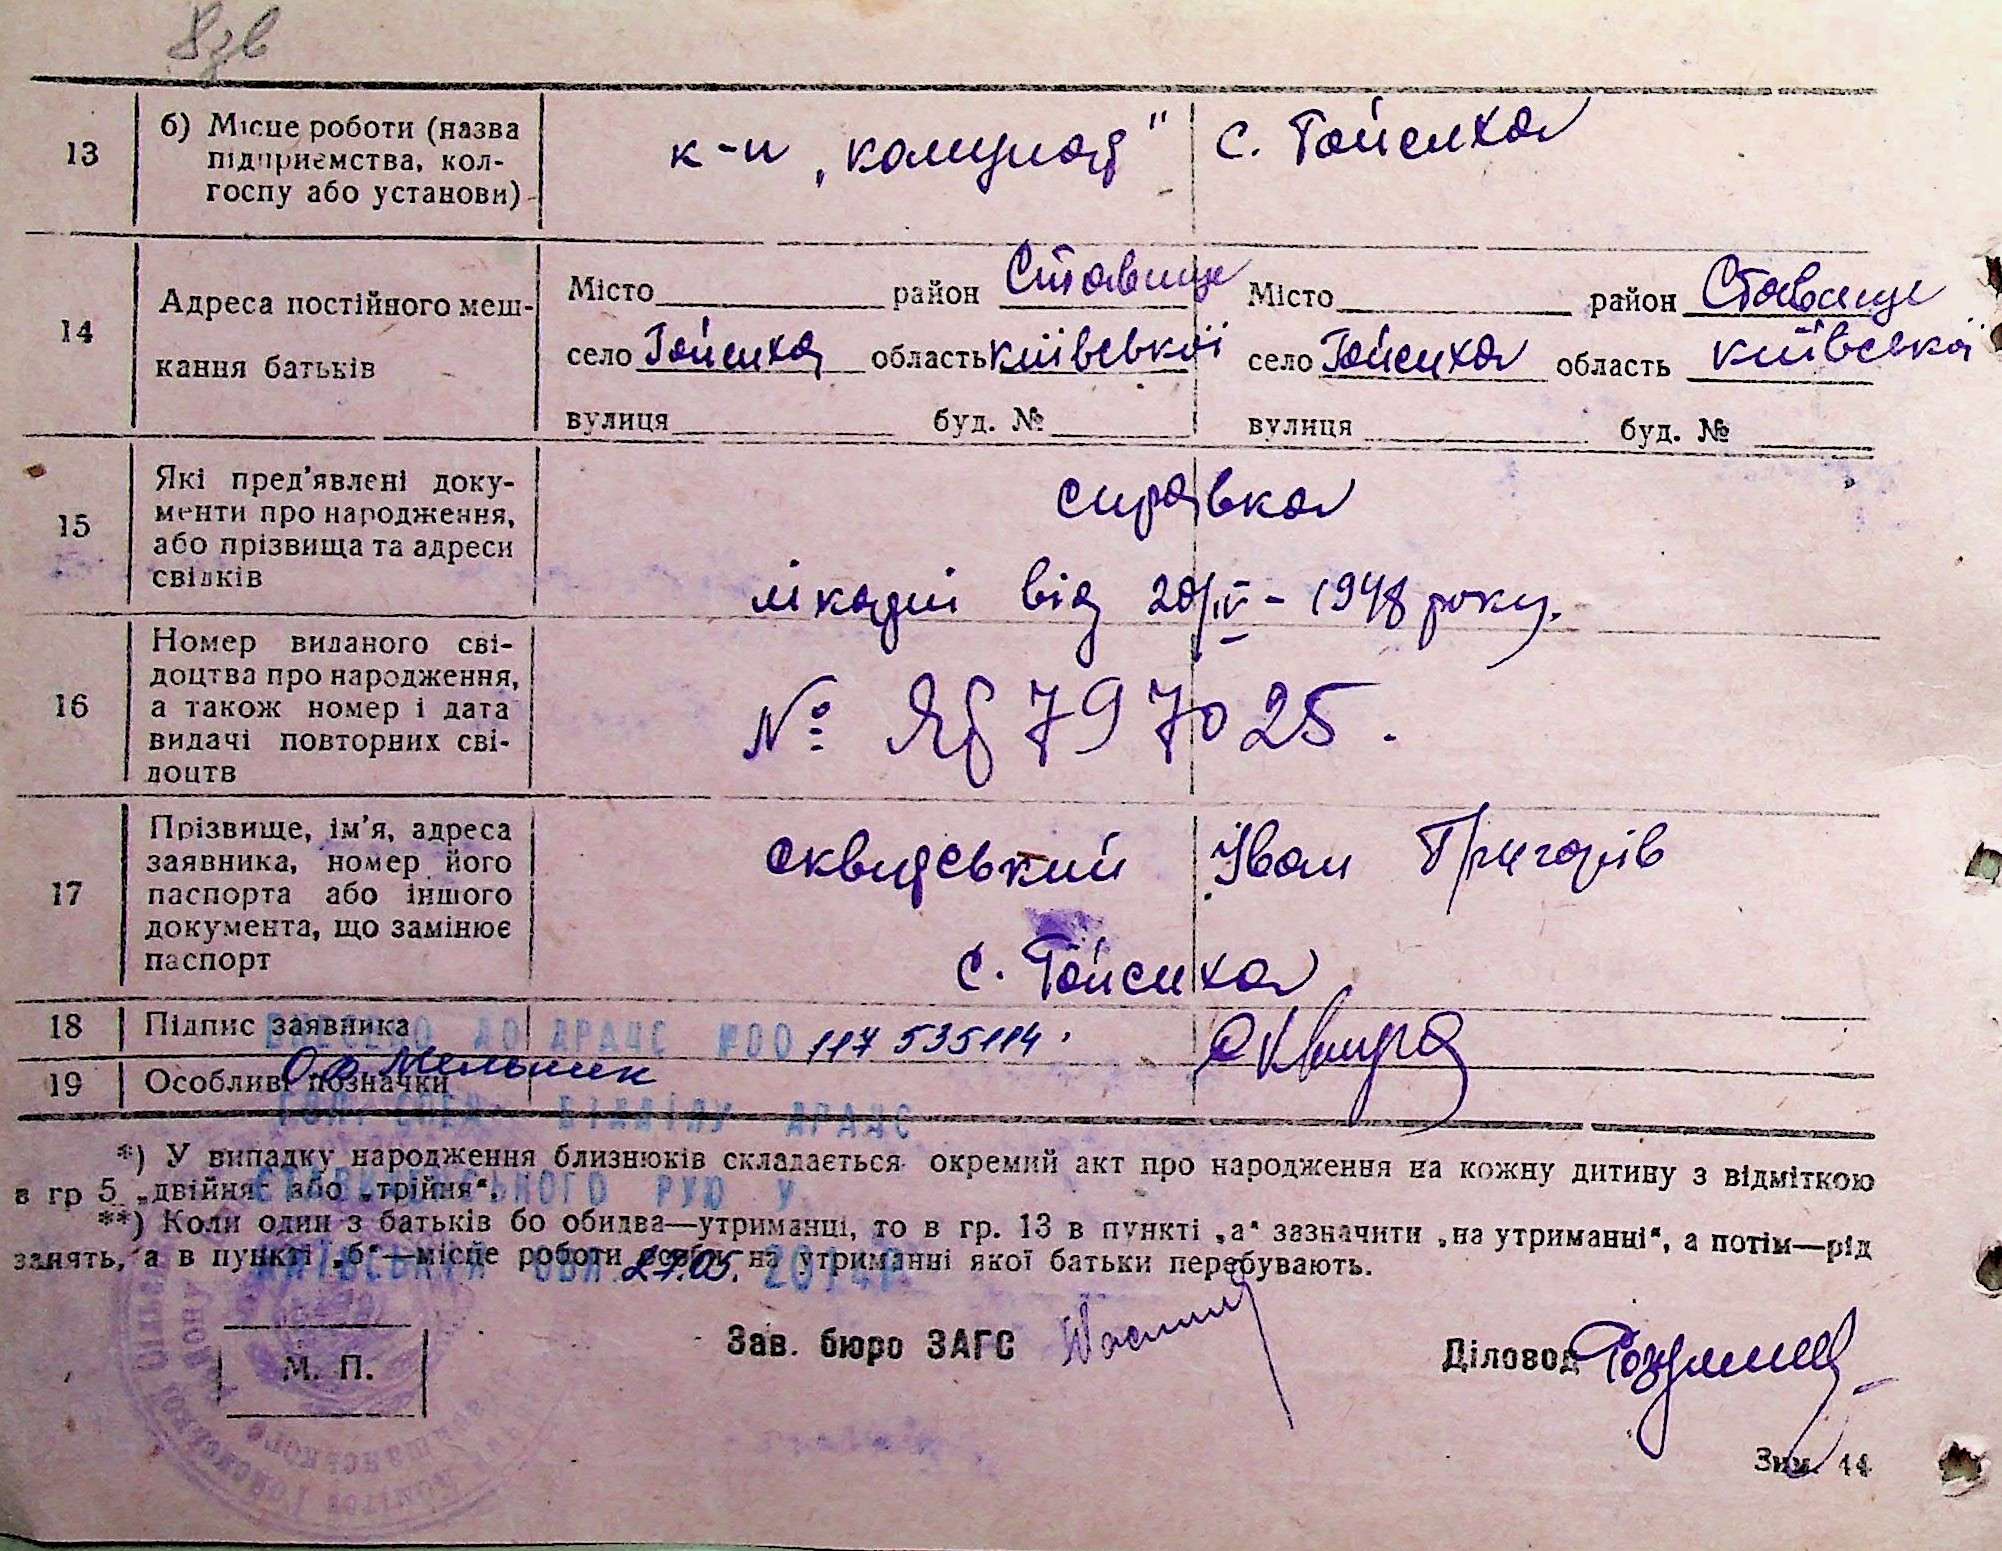 13
б) Місце роботи (назва
підприємства, кол-
госпу або установи)
к-п „комунар" с. Гойсиха
14
Адреса постійного меш-
кання батьків
Місто район Ставище
село Гойсиха область київської
вулиця буд. №
Місто район Ставище
село Гойсиха область київської
вулиця буд. №
15
Які пред'явлені доку-
менти про народження,
або прізвища та адреси
свідків
справка
лікарні від 20/IV - 1948 року.
16
Номер виданого сві-
доцтва про народження,
а також номер і дата
видачі повторних сві-
доцтв
№ ЯБ 797025.
17
Прізвище, ім'я, адреса
заявника, номер його
паспорта або іншого
документа, що замінює
паспорт
Сквирський Іван Григорів
с. Гойсиха
18 Підпис заявника
ВНЕСЕНО ДО ДРАЦС №00 117 535114.
19 Особливі позначки
О.Ф. Мельник
ГОЛ. СПЕЦ. ВІДДІЛУ ДРАЦС
*) У випадку народження близнюків складається окремий акт про народження на кожну дитину з відміткою
в гр 5 „двійня" або „трійня".
СТАВИЩЕНСЬКОГО РУЮ У
**) Коли один з батьків бо обидва—утриманці, то в гр. 13 в пункті „а" зазначити „на утриманні", а потім—рід
занять, а в пункті „б"—місце роботи особи, на утриманні якої батьки перебувають.
КИЇВСЬКІЙ ОБЛ. 27.05. 2014р
М. П.
Зав. бюро ЗАГС
Діловод
Зам. 44